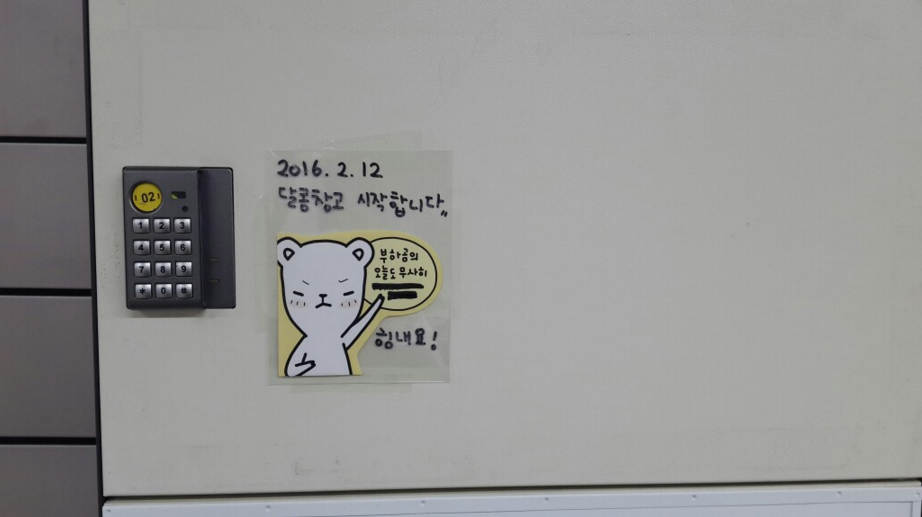 102
1 2 3
4 5 6
7 8 9
* 0 #
2016. 2. 12
달콤창고 시작합니다,,
부하곰의
오늘도 무사히
힘내요!